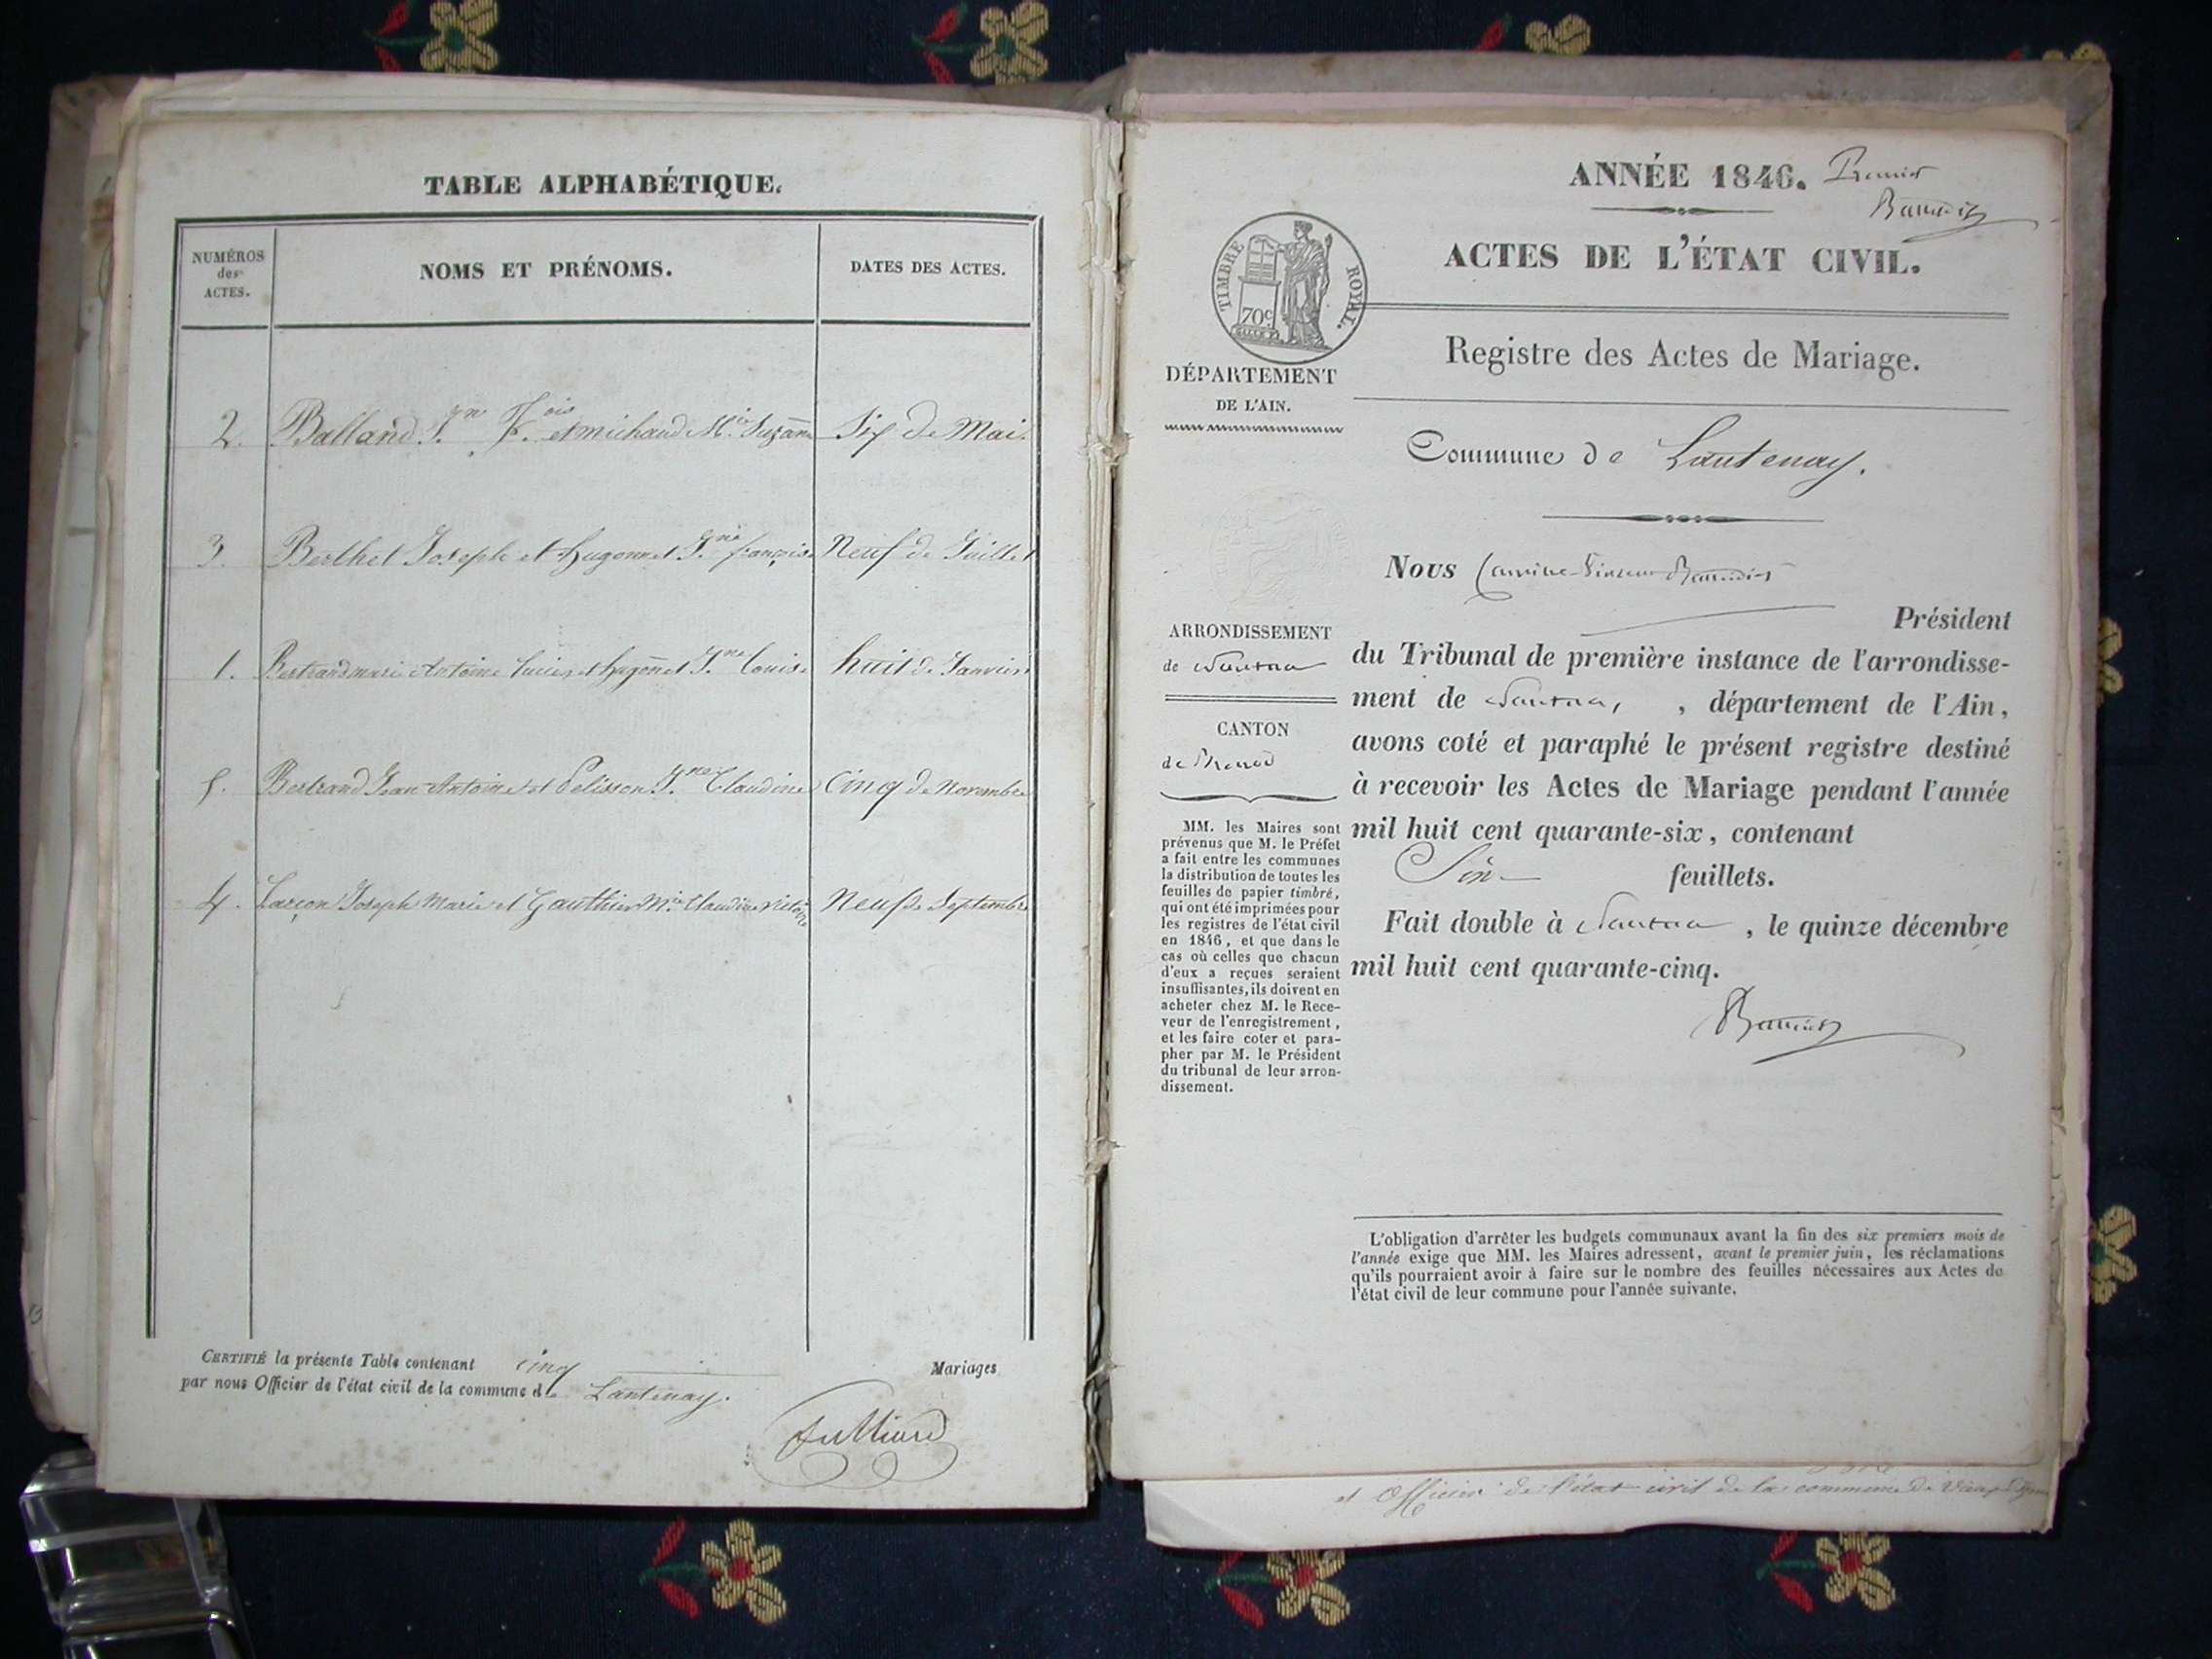 TABLE ALPHABÉTIQUE.
NUMÉROS
des
ACTES.
NOMS ET PRÉNOMS.
DATES DES ACTES.
2. Balland J.n F.ois et michaud M.ie Suzanne Six de Mai.
3. Berthet Joseph et hugonnet J.ne françoise Neuf de Juillet
1. Bertrand marie Antoine et hugonnet J.ne Louise huit de Janvier
5. Bertrand Jean Antoine et Pelisson J.ne Claudine Cinq de Novembre
4. Larçon Joseph Marie et Gauthier M.ie Claudine Neuf de Septembre
CERTIFIÉ la présente Table contenant cinq Mariages
par nous Officier de l'état civil de la commune de Lantenay.
ANNÉE 1846. Premier
ACTES DE L'ÉTAT CIVIL.
TIMBRE ROYAL.
70c
Registre des Actes de Mariage.
DÉPARTEMENT
DE L'AIN.
Commune de Lantenay.
Nous
Président
du Tribunal de première instance de l'arrondisse-
ment de Nantua, , département de l'Ain,
avons coté et paraphé le présent registre destiné
à recevoir les Actes de Mariage pendant l'année
mil huit cent quarante-six, contenant
feuillets.
Fait double à Nantua , le quinze décembre
mil huit cent quarante-cinq.
ARRONDISSEMENT
de Nantua
CANTON
de Brenod
MM. les Maires sont
prévenus que M. le Préfet
a fait entre les communes
la distribution de toutes les
feuilles de papier timbré,
qui ont été imprimées pour
les registres de l'état civil
en 1846, et que dans le
cas où celles que chacun
d'eux a reçues seraient
insuffisantes, ils doivent en
acheter chez M. le Rece-
veur de l'enregistrement,
et les faire coter et para-
pher par M. le Président
du tribunal de leur arron-
dissement.
L'obligation d'arrêter les budgets communaux avant la fin des six premiers mois de
l'année exige que MM. les Maires adressent, avant le premier juin, les réclamations
qu'ils pourraient avoir à faire sur le nombre des feuilles nécessaires aux Actes de
l'état civil de leur commune pour l'année suivante.
et Officier de l'état civil de la commune de